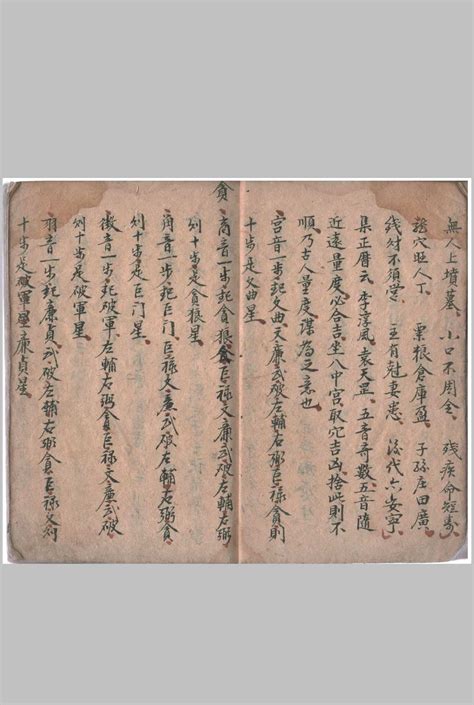 無人上墳墓 小口不周全 残疾命短寿
穴旺人丁 粟粮倉庫盈 子孫庄田廣
錢財不須営 主有尅妻患 後代六安寧
集正暦云李淳風袁天罡五音竒数五音随
近遠量度必合吉坐八中宫取穴吉凶捨此則不
順乃古人量度謀為之意也
宫音一步起文曲文廉武破左輔右弼巨祿貪則
十步是文曲星
貪
商音一步起貪狼貪巨祿文廉武破左輔右弼
則十步是貪狼星
角音一步起巨门巨祿文廉武破左輔右弼貪
則十步是巨门星
徵音一步起破軍左輔右弼貪巨祿文廉武破
則十步是破軍星
羽音一步起廉貞武破左輔右弼貪巨祿文則
十步是破軍星廉貞星